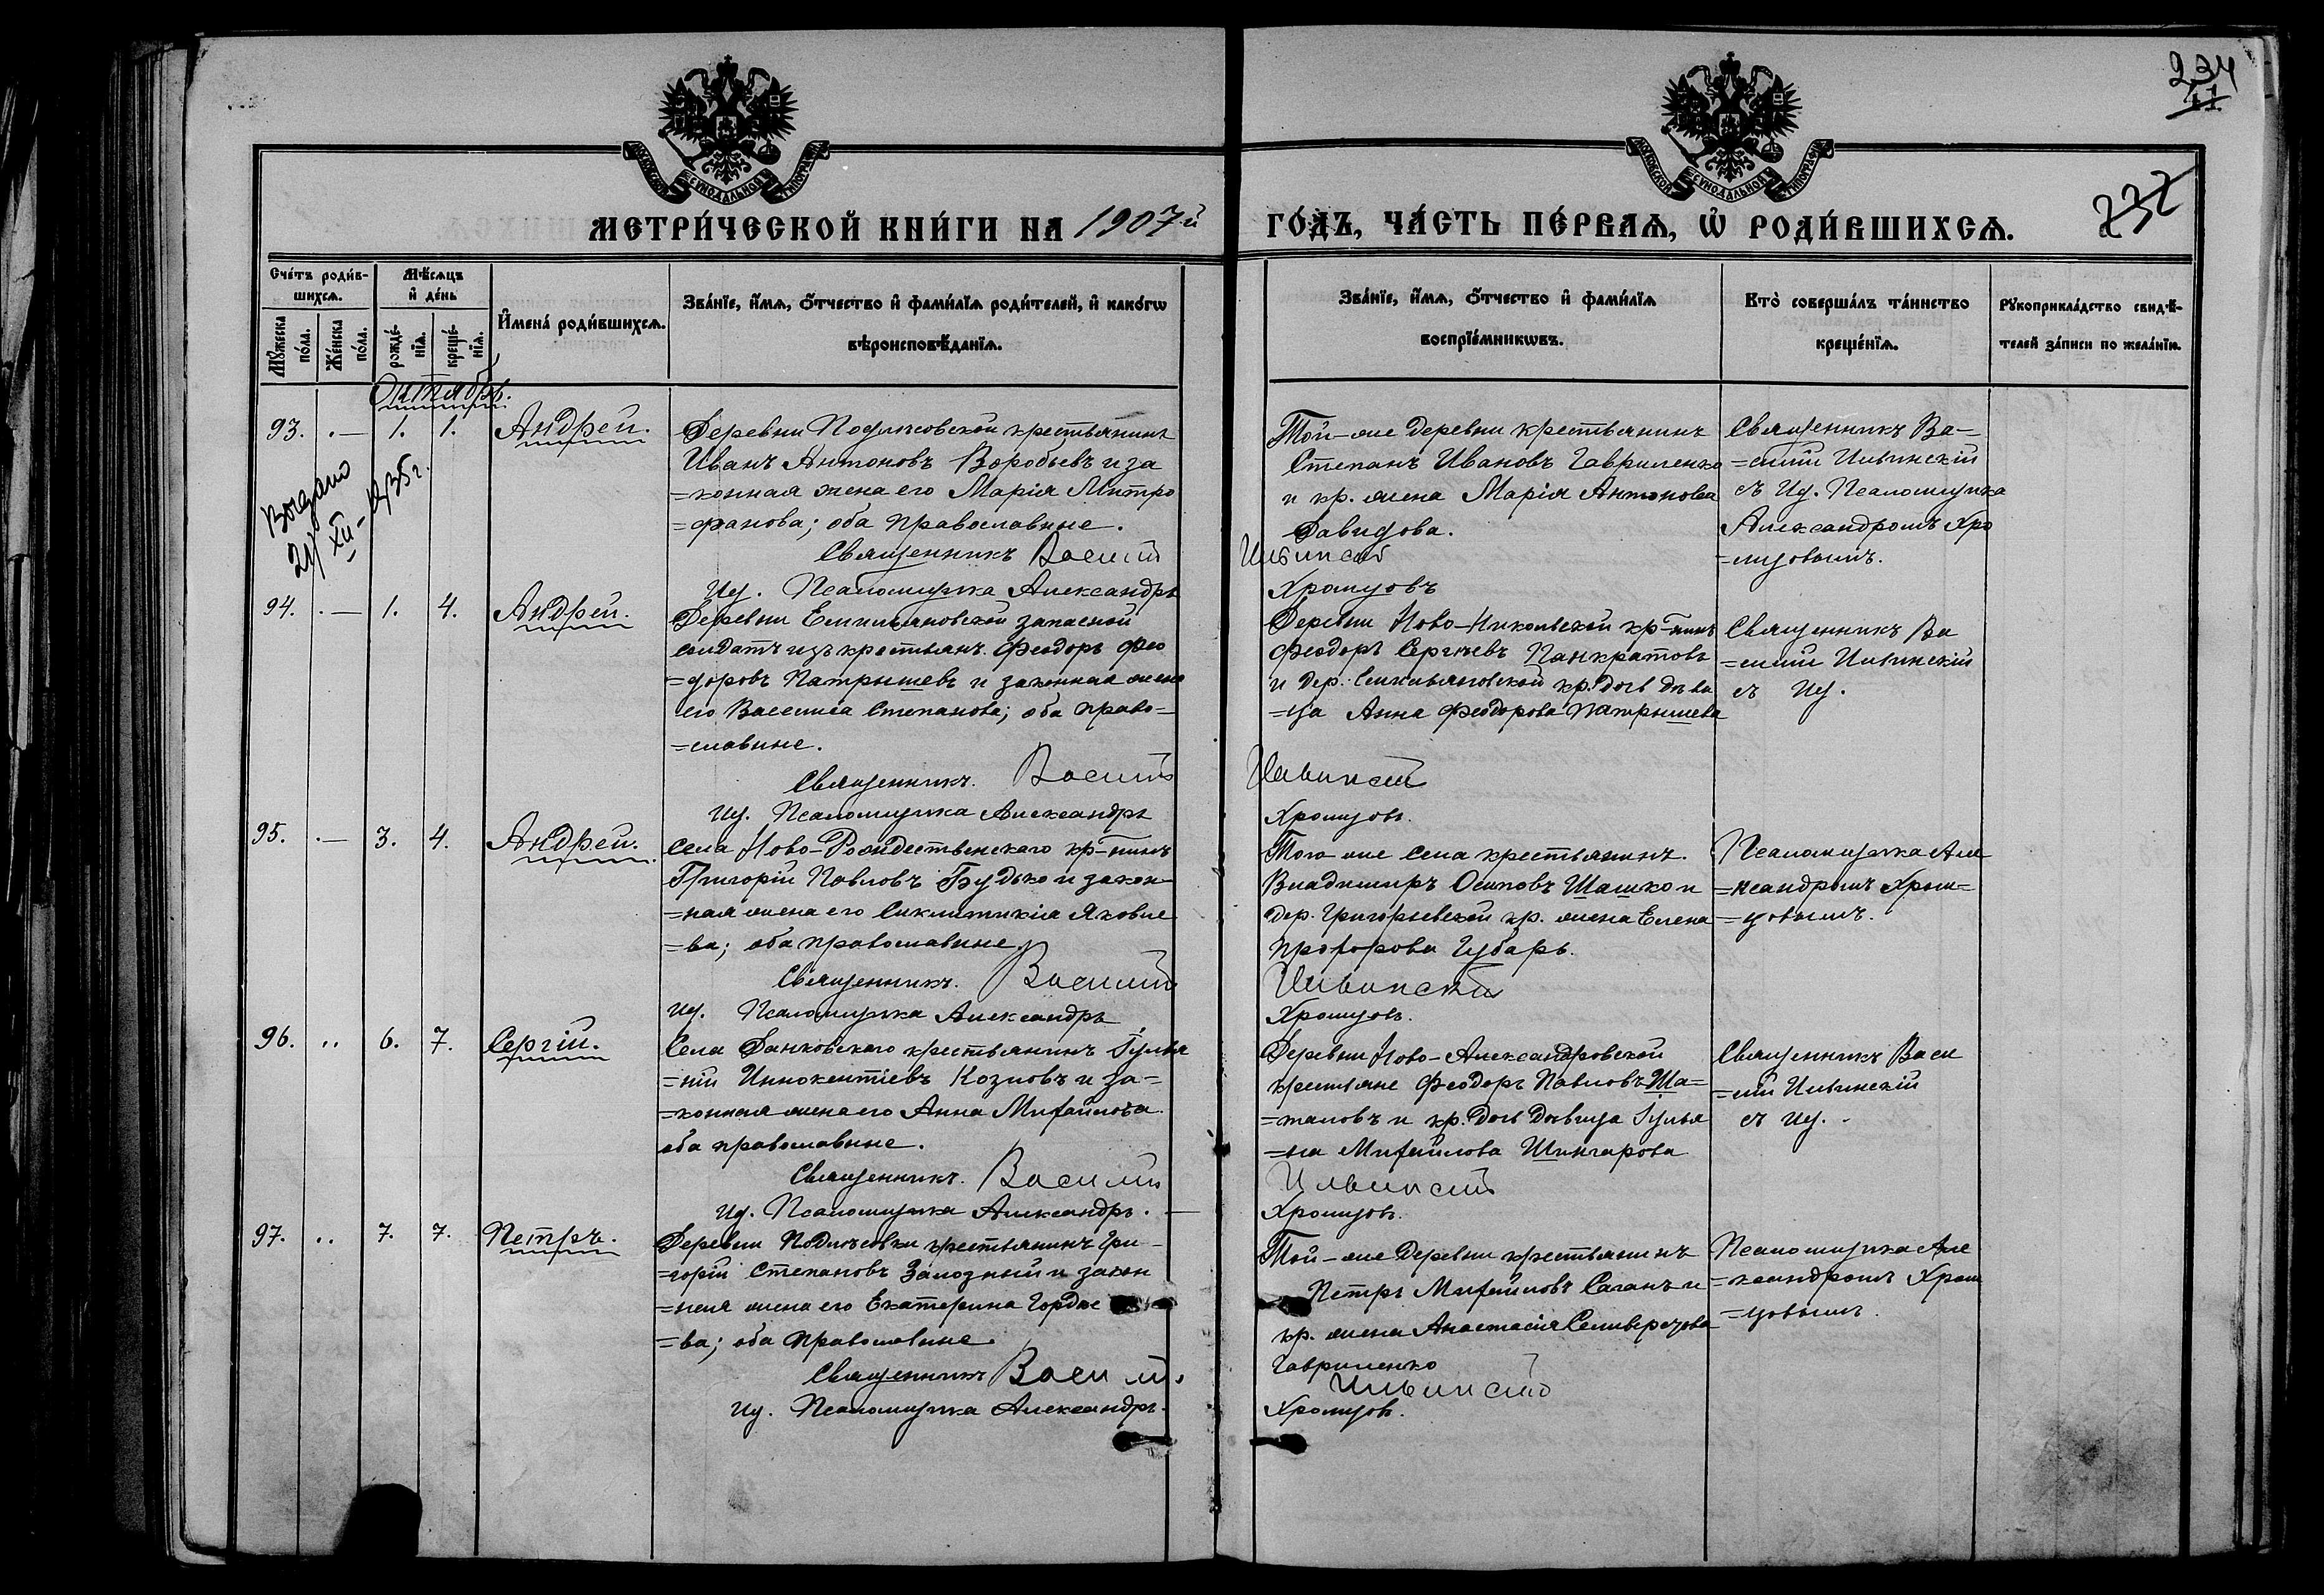 234
11
МОСКОВСКОЙ СѴНОДАЛЬНОЙ ТИПОГРАФІИ
МОСКОВСКОЙ СѴНОДАЛЬНОЙ ТИПОГРАФІИ
232
МЕТРИ́ЧЕСКОЙ КНИ́ГИ НА 1907-й ГО́ДЪ, ЧА́СТЬ ПЕ́РВАѦ, Ѽ РОДИ́ВШИХСѦ.
Сче́тъ роди́в-
шихсѧ.
Мꙋ́жеска по́ла.
Же́нска по́ла.
Мѣ́сѧцъ
и҆ де́нь
рожде́-
нїѧ.
креще́-
нїѧ.
И҆мена̀ роди́вшихсѧ.
Зва́нїе, и҆́мѧ, ѻ҆́тчество и҆ фами́лїѧ роди́телей, и҆ како́гѡ
вѣроисповѣ́данїѧ.
Зва́нїе, и҆́мѧ, ѻ҆́тчество и҆ фами́лїѧ
воспрїе́мникѡвъ.
Кто̀ соверша́лъ та́инство
креще́нїѧ.
Рꙋкоприкла́дство свидѣ́-
телей за́писи по жела́нїю.
Октябрь.
93. .— 1. 1. Андрей.
Выдано
21/XII-1935г.
Деревни Подлѣсовской крестьянинъ
Иванъ Антоновъ Воробьевъ и за
=конная жена его Марія Митро
=фанова; оба православные.
Священникъ Василій
Ид. Псаломщика Александръ
Той-же деревни крестьянинъ
Степанъ Ивановъ Гавриленко
и кр. жена Марія Антонова
Давидова.
Ильинскій
Хромцовъ
Священникъ Ва-
=силій Ильинскій
съ Ид. Псаломщика
Александромъ Хро
=мцовымъ.
94. .— 1. 4. Андрей.
Деревни Емильяновской запасной
солдатъ изъ крестьянъ Феодоръ Фео
=доровъ Патрышевъ и законная жена
его Василиса Степанова; оба право=
=славные.
Священникъ. Василій
Ид. Псаломщика Александръ
Деревни Ново-Никольской кр-нинъ
Феодоръ Сергѣевъ Панкратовъ
и дер. Емильяновской кр. дочь дѣви
=ца Анна Феодорова Патрышева
Ильинскій
Хромцовъ.
Священникъ Ва
=силій Ильинскій
съ Ид.
95. .— 3. 4. Андрей.
Села Ново-Рождественскаго кр-нинъ
Григорій Павловъ Будько и закон-
=ная жена его Синклитикія Яковле
=ва; оба православные.
Священникъ. Василій
Ид. Псаломщика Александръ
Того-же села крестьянинъ.
Владимиръ Осиповъ Шашко и
дер. Григорьевской кр. жена Елена
Прохорова Губарь.
Ильинскій
Хромцовъ.
Псаломщика Але
=ксандромъ Хром=
=цовымъ.
96. .. 6. 7. Сергій.
Села Данковскаго крестьянинъ Іулья
=ній Иннокентіевъ Козловъ и за=
=конная жена его Анна Михайлова
оба православные.
Священникъ. Василій
Ид. Псаломщика Александръ.
Деревни Ново-Александровской
крестьяне Феодоръ Павловъ Ша=
=таловъ и кр. дочь дѣвица Іулья
=на Михайлова Шингарова
Ильинскій
Хромцовъ.
Священникъ Васи
=лій Ильинскій
съ Ид.
97. .. 7. 7. Петръ.
Деревни Подлѣсовки крестьянинъ Гри-
=горій Степановъ Залозный и закон
=ная жена его Екатерина Гордѣе
=ва; оба православные.
Священникъ Василій
Ид. Псаломщика Александръ.
Той-же деревни крестьянинъ
Петръ Михайловъ Саганъ и
кр. жена Анастасія Селиверстова
Гавриленко
Ильинскій
Хромцовъ.
Псаломщика Але
=ксандромъ Хром
=цовымъ